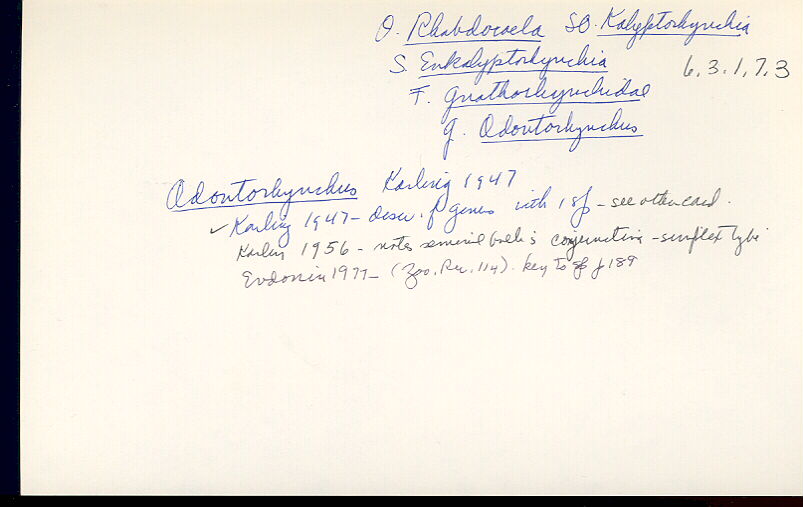 O. Rhabdocoela SO. Kalyptorhynchia
S. Eukalyptorhynchia 6.3.1.7.3
F. Gnathorhynchidae
G. Odontorhynchus
Odontorhynchus Karling 1947
✓ Karling 1947 – descr. of genus with 1 sp – see other card.
Karling 1956 – notes seminal conjunctiva – simplex type
Evdonin 1977 – (Zoo. Rec. 114). key to sp p 189